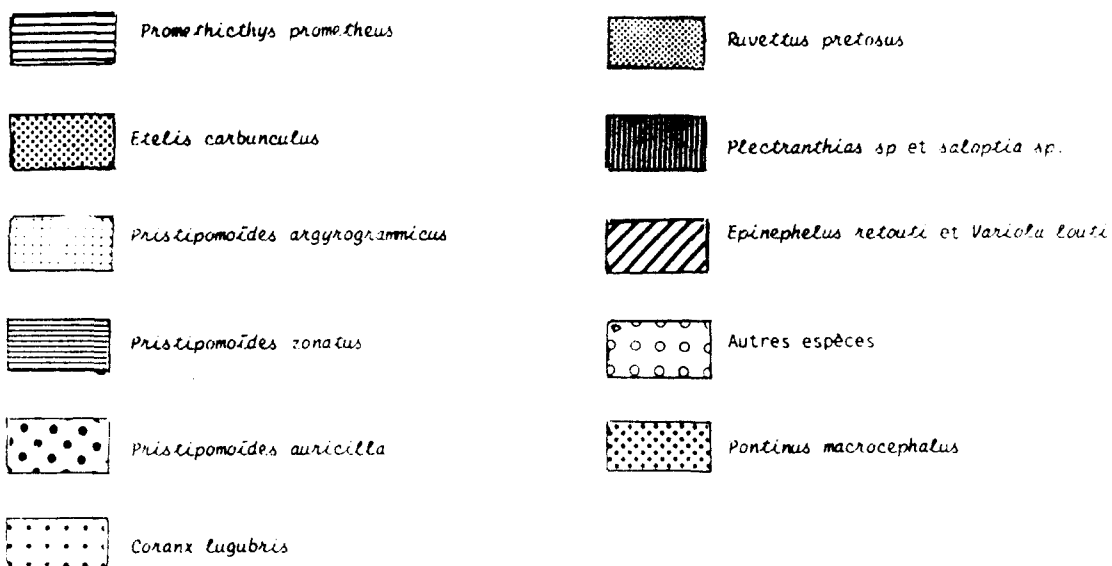 Promethicthys prometheus
Etelis carbunculus
Pristipomoïdes argyrogrammicus
Pristipomoïdes zonatus
Pristipomoïdes auricilla
Coranx lugubris
Ruvettus pretosus
Plectranthias sp et saloptia sp.
Epinephelus retouti et Variola louti
Autres espèces
Pontinus macrocephalus